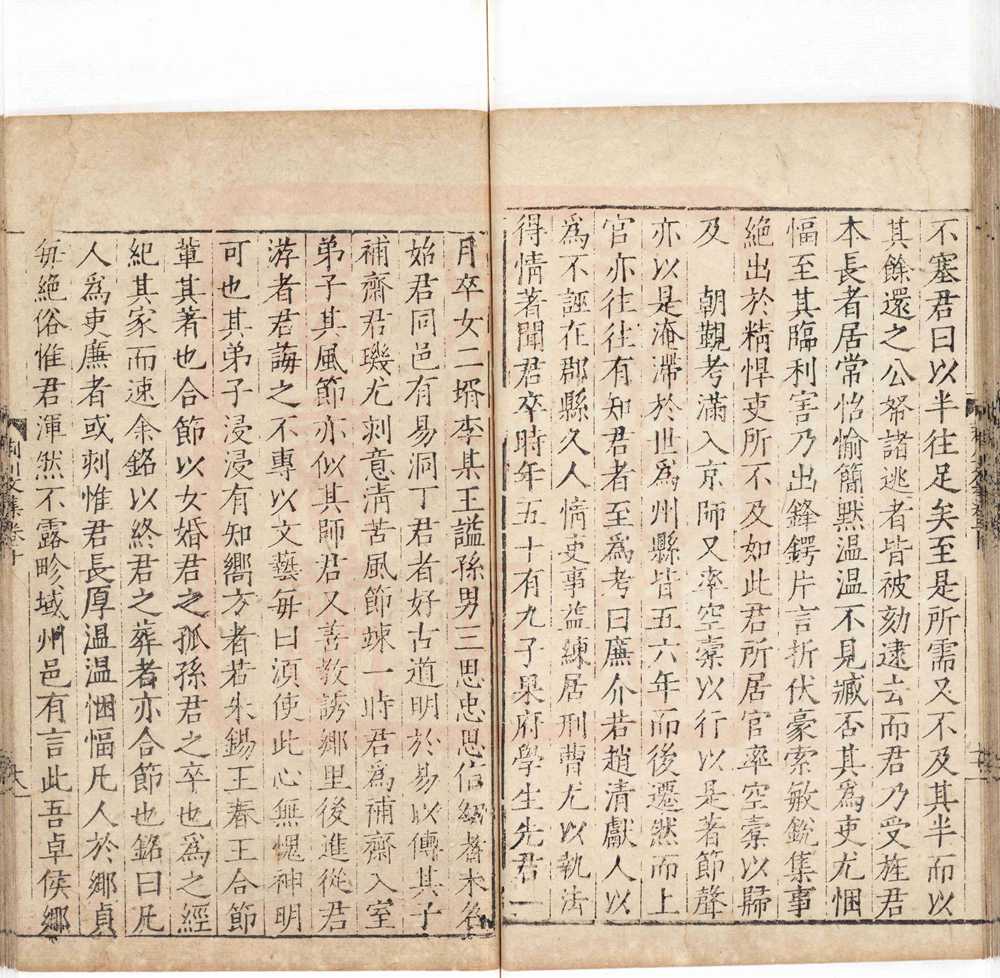 不塞君曰以半往足矣至是所需又不及其半而以
其餘還之公帑諸逃者皆被劾逮去而君乃受旌君
本長者居常怡愉簡黙温温不見臧否其為吏尤悃
愊至其臨利害乃出鋒鍔片言折伏豪索敏銳集事
絶出於精悍吏所不及如此君所居官率空槖以歸
及　朝覲考滿入京師又率空槖以行以是著節聲
亦以是淹滯於世爲州縣皆五六年而後遷然而上
官亦往往有知君者至爲考曰廉介若趙清獻人以
爲不誣在郡縣久人情吏事益練居刑曹尤以執法
得情著聞君卒時年五十有九子杲府學生先君一
月卒女二壻李某王謚孫男三思忠思伯㓜者未名
始君同邑有易洞丁君者好古道明於易以傳其子
補齋君璣尤刺意清苦風節竦一時君爲補齋入室
弟子其風節亦似其師君又善教誘鄉里後進從君
游者君誨之不專以文藝每曰湏使此心無愧神明
可也其弟子浸浸有知嚮方者若朱錫王春王合節
軰其著也合節以女婚君之孤孫君之卒也爲之經
紀其家而速余銘以終君之葬者亦合節也銘曰凡
人爲吏廉者或刺惟君長厚温温悃愊凡人於鄉貞
每絶俗惟君渾然不露畛域州邑有言此吾卓侯鄉
荆川文集卷十